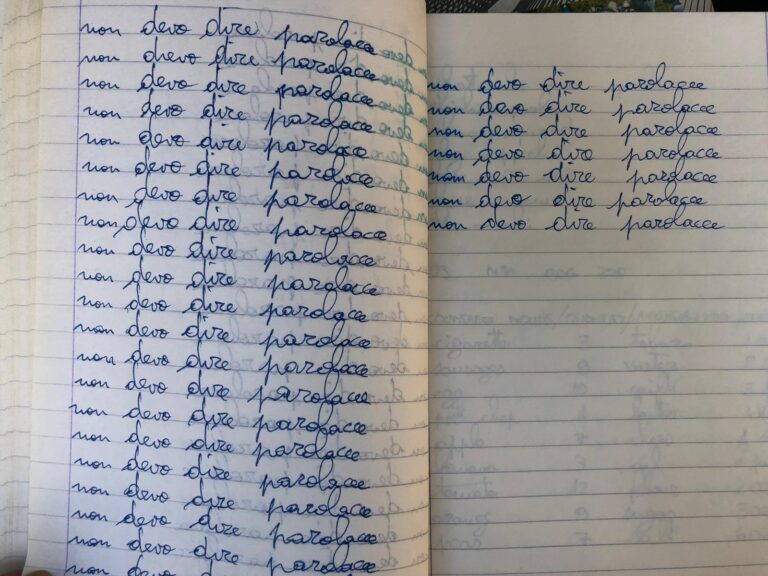 non devo dire parolacce
non devo dire parolacce
non devo dire parolacce
non devo dire parolacce
non devo dire parolacce
non devo dire parolacce
non devo dire parolacce
non devo dire parolacce
non devo dire parolacce
non devo dire parolacce
non devo dire parolacce
non devo dire parolacce
non devo dire parolacce
non devo dire parolacce
non devo dire parolacce
non devo dire parolacce
non devo dire parolacce
non devo dire parolacce
non devo dire parolacce
non devo dire parolacce
non devo
non devo dire parolacce
non devo dire parolacce
non devo dire parolacce
non devo dire parolacce
non devo dire parolacce
non devo dire parolacce
non devo dire parolacce